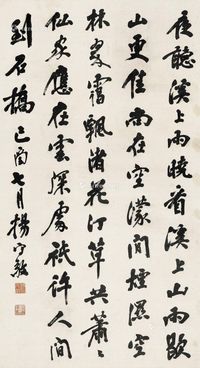 夜聽溪上雨曉看溪上山雨歇
山更佳尚在空濛間煙濕空
林翠靄飄渚花汀草共蕭〻
仙家應在雲深處祇許人間
到石橋 己酉七月楊守敬